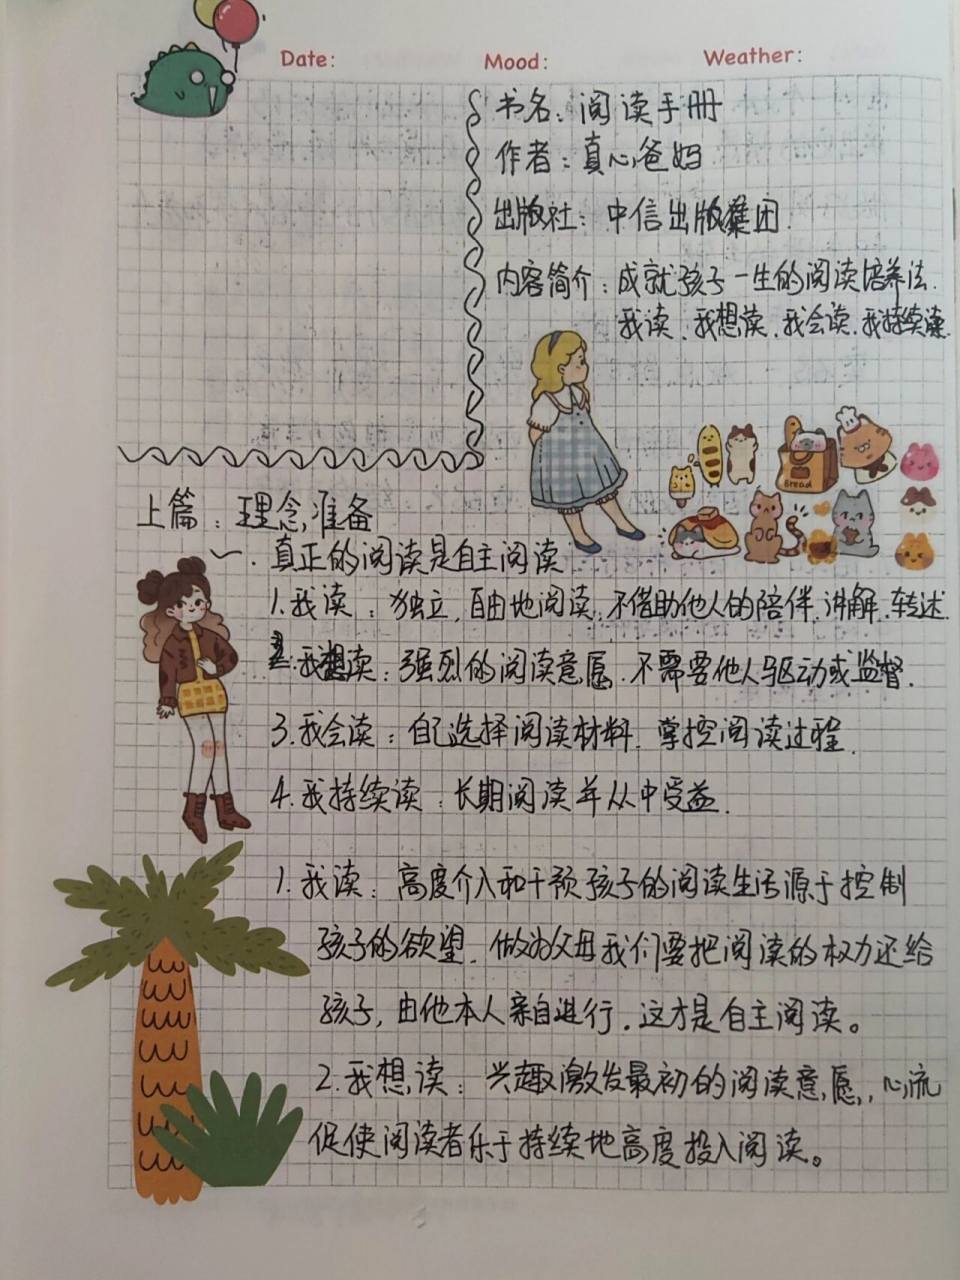 Date:
Mood:
Weather:
书名：阅读手册
作者：真心爸妈
出版社：中信出版集团.
内容简介：成就孩子一生的阅读培养法.
我读、我想读、我会读、我持续读.
Bread
上篇：理念准备
一. 真正的阅读是自主阅读
1.我读：独立,自由地阅读,不借助他人的陪伴,讲解,转述.
2.我想读：强烈的阅读意愿.不需要他人驱动或监督.
3.我会读：自己选择阅读材料.掌控阅读过程.
4.我持续读：长期阅读并从中受益.
1.我读：高度介入和干预孩子的阅读生活源于控制
孩子的欲望.做为父母我们要把阅读的权力还给
孩子,由他本人亲自进行.这才是自主阅读。
2.我想读：兴趣激发最初的阅读意愿,心流
促使阅读者乐于持续地高度投入阅读。